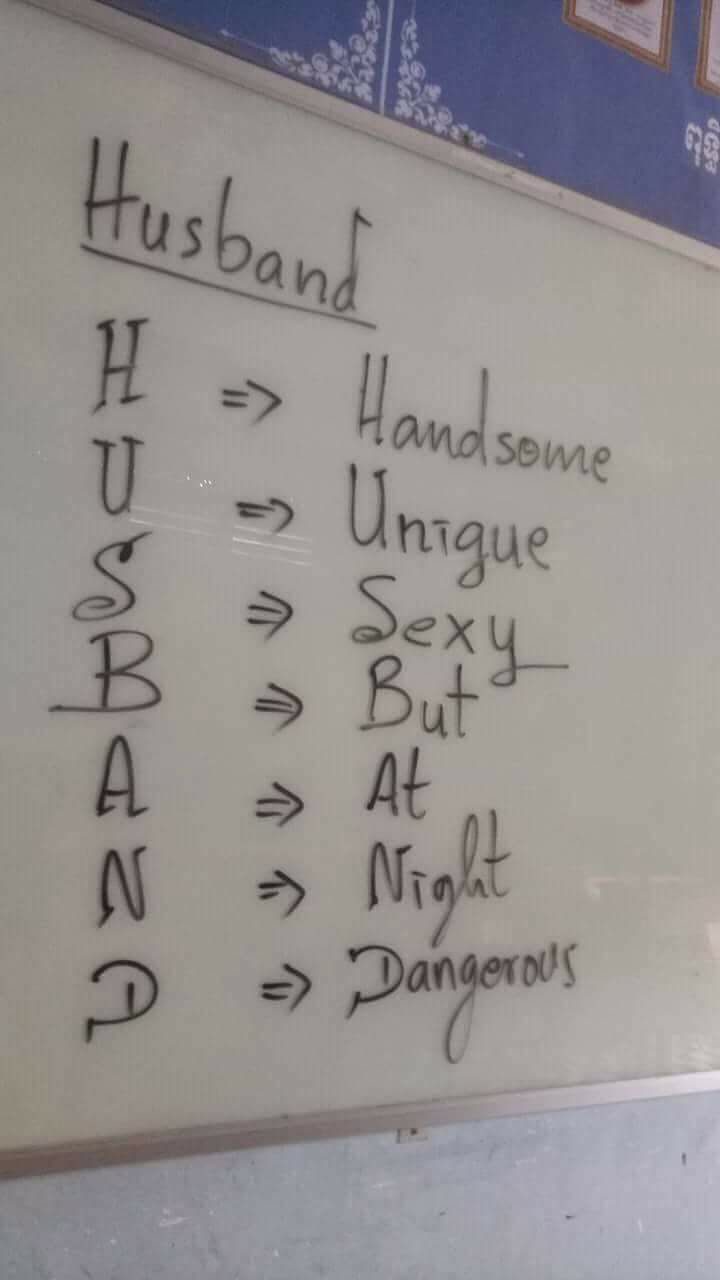 Husband
H => Handsome
U => Unique
S => Sexy
B => But
A => At
N => Night
D => Dangerous